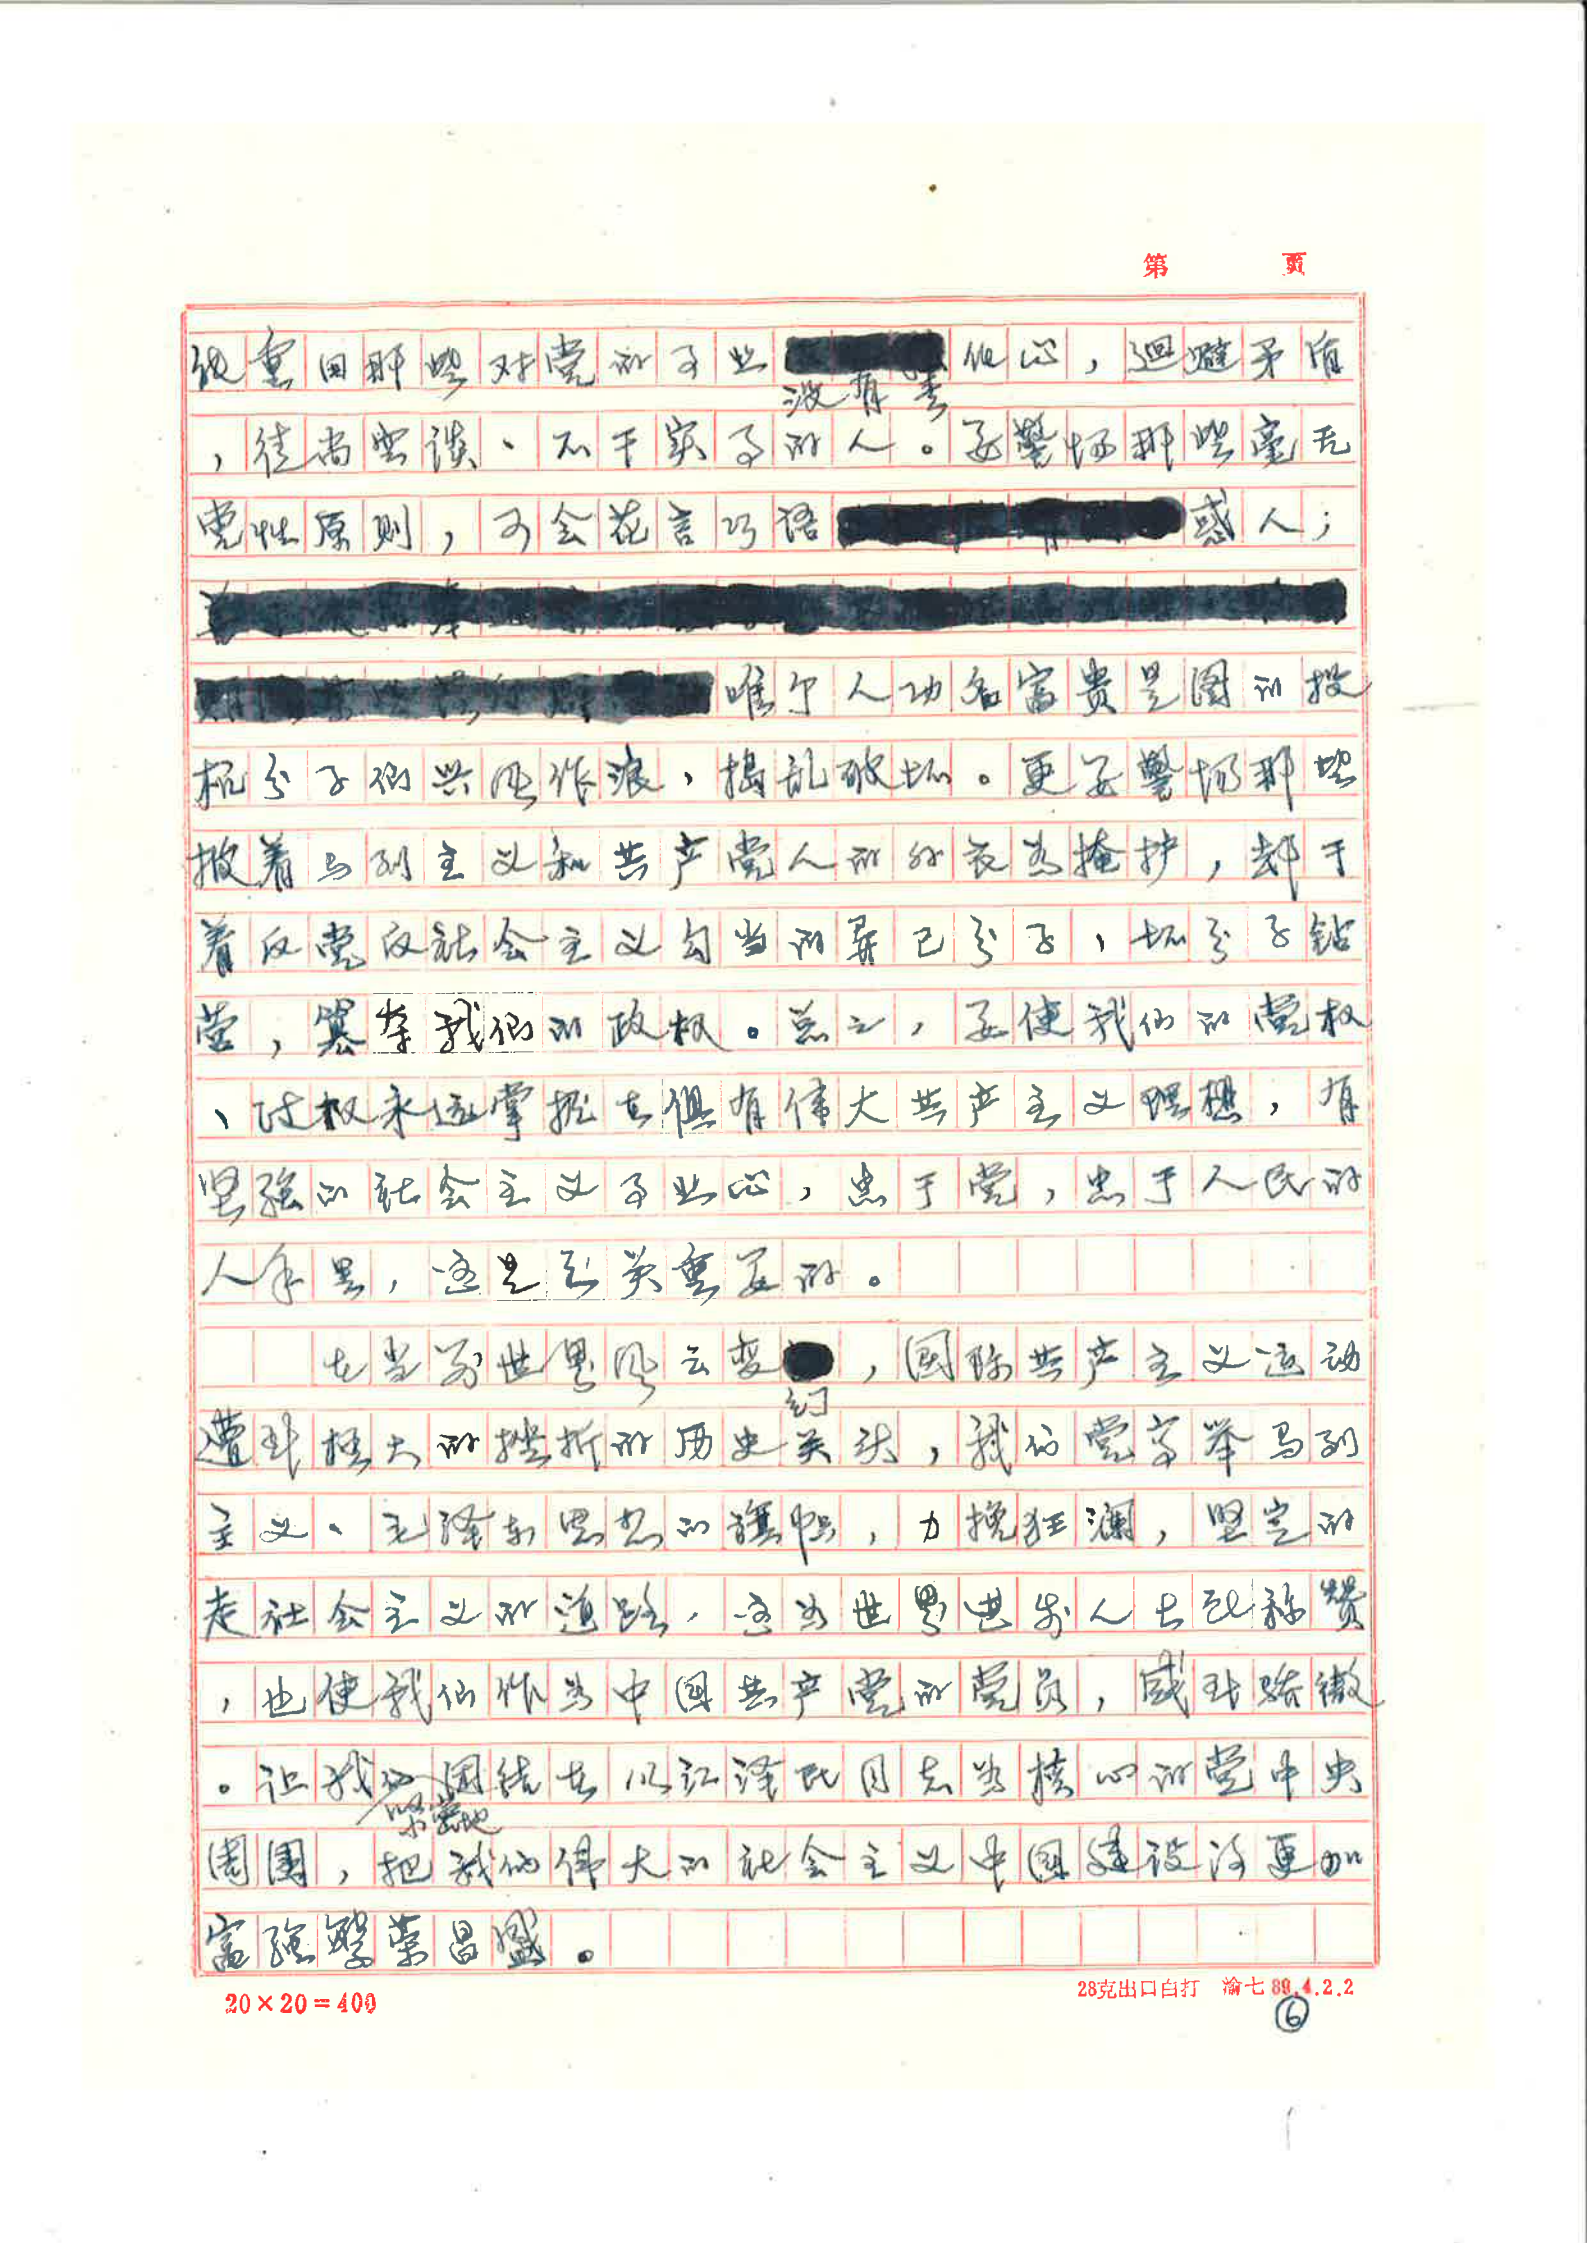 第 页
能重用那些对党的事业没有责任心，迴避矛盾
，徒尚空谈、不干实事的人。要警惕那些毫无
党性原则，可会花言巧语惑人；
唯个人功名富贵是图的投
机分子们兴风作浪，捣乱破坏。更要警惕那些
披着马列主义和共产党人的外衣为掩护，却干
着反党反社会主义勾当的异己分子，坏分子钻
营，篡夺我们的政权。总之，要使我们的党权
、政权永远掌握在俱有伟大共产主义理想，有
坚强的社会主义事业心，忠于党，忠于人民的
人手里，这是至关重要的。
在当前世界风云变幻，国际共产主义运动
遭到极大的挫折的历史关头，我们党高举马列
主义、毛泽东思想的旗帜，力挽狂澜，坚定的
走社会主义的道路，这为世界进步人士所称赞
，也使我们作为中国共产党的党员，感到骄傲
。让我们紧密地团结在以江泽民同志为核心的党中央
周围，把我们伟大的社会主义中国建设得更加
富强繁荣昌盛。
20×20=400
28克出口白打 渝七 89.4.2.2
⑥